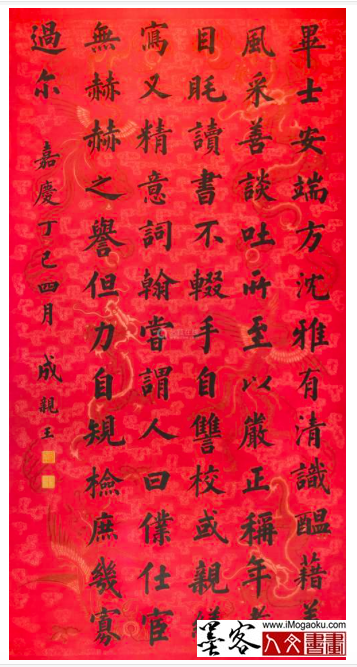 畢士安端方沈雅有清識醞藉美
風采善談吐所至以嚴正稱年
目眊讀書不輟手自讐校或親繕
寫又精意詞翰嘗謂人曰僕仕宦
無赫赫之譽但力自規檢庶幾寡
過尔
嘉慶丁巳四月
成親王
www.iMogaoku.com
墨客
人文書畫